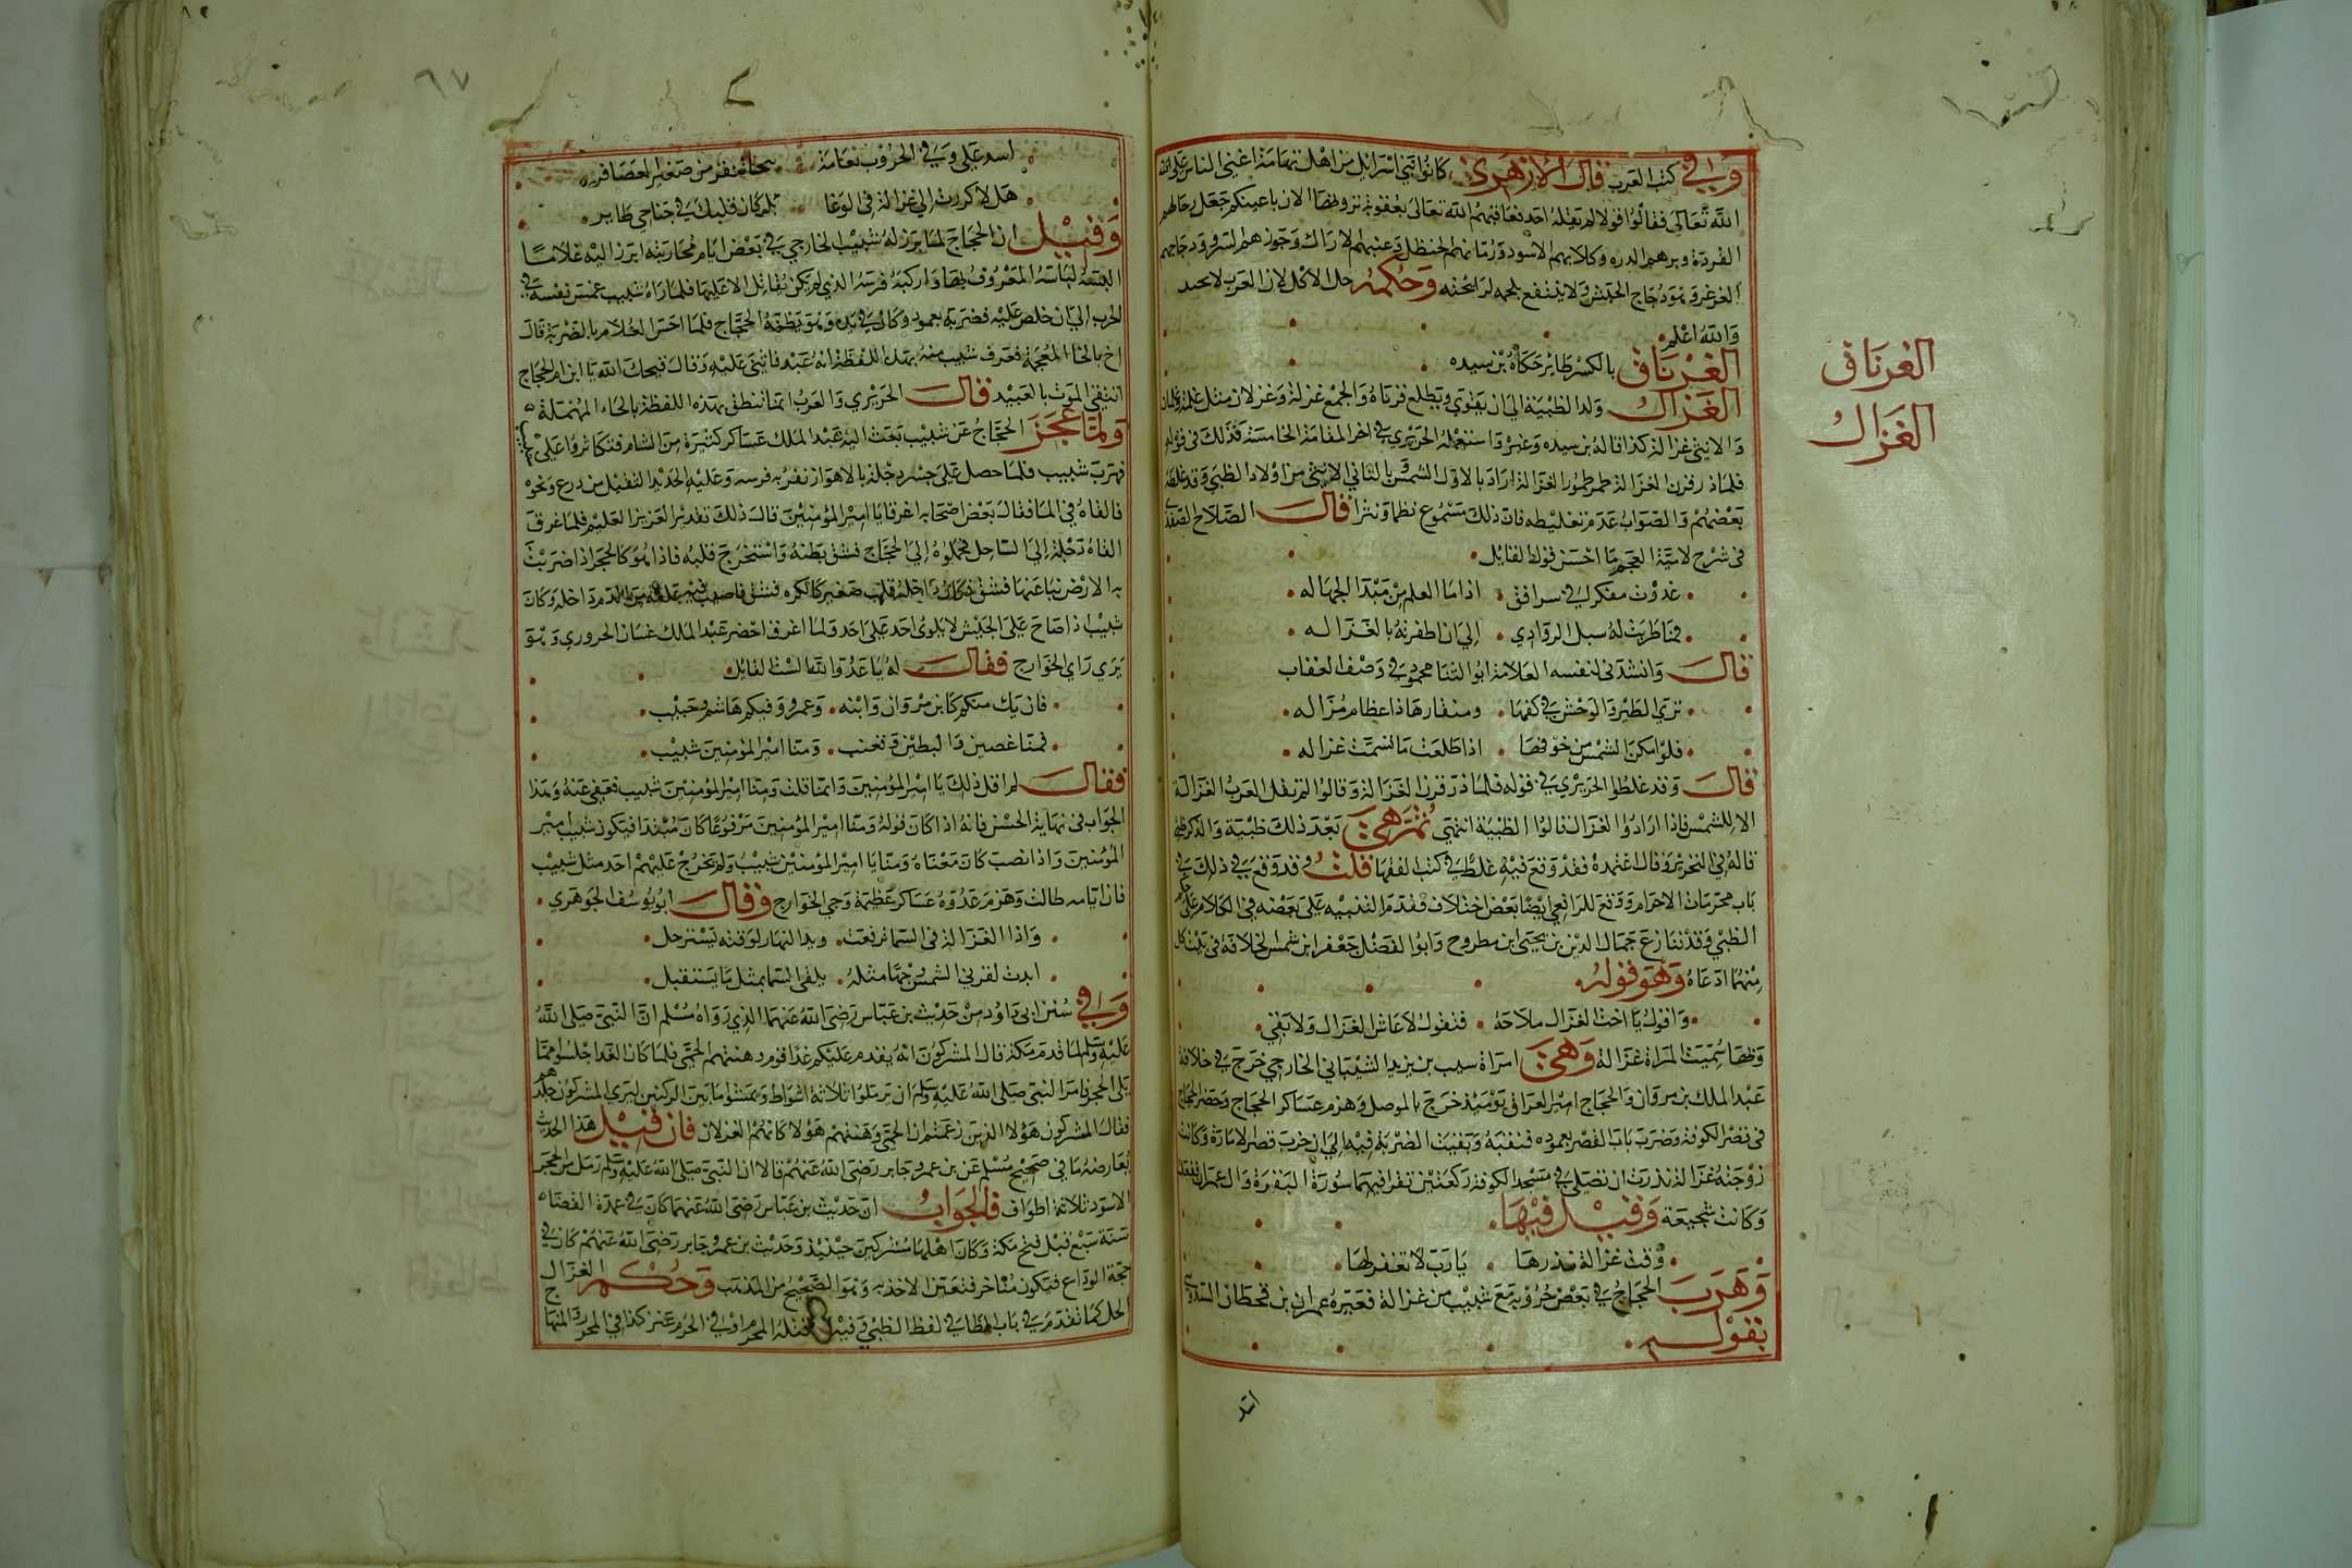 وفي كتب العرب قال الازهري كانوا بني اسرائيل من اهل تهامة اغني الناس علي الله
الله تعالي فقالوا قولا لم يقله احد فعاقبهم الله تعالي بعقوبة ترونها الان باعينكم جعل رجالهم
القردة وبرهم الدره وكلابهم الاسود ورمانهم الحنظل وعنبهم الاراك وجوزهم السرو ودجاجهم
الغرغر وهو دجاج الحبش ولا ينتفع بلحمه لرائحته وحكمه حل الاكل لان العرب لا
والله اعلم
الغرناق بالكسر طائر حكاه بن سيده
الغرناق
الغزال ولد الظبية الي ان يقوي ويطلع قرناه والجمع غزلة وغزلان مثل غلمة وغلمان
الغزال
والانثي غزالة كذا قاله بن سيده وغيره واستعمله الحريري في اخر المقامة الخامسة كذلك في قوله
فلما ذر قرن الغزالة طمر طمور الغزالة اراد بالاول الشمس وبالثاني الانثي من اولاد الظبي وقد غلطه
بعضهم والصواب عدم تغليطه فان ذلك مسموع نظما ونثرا قال الصلاح الصفدي
في شرح لامية العجم ما احسن قول القايل
غدوت مفكرا في سر افق اذا ما العلم من مبدا الجهاله
فما طويت له سبل الروادي الي ان اظفرته بالغزاله
قال وانشدني لنفسه العلامة ابو الثنا محمود في وصف العقاب
تري الطير والوحش في كفها ومنقارها ذا عظام مزاله
فلو امكن الشمس من خوفها اذا طلعت ما تسمت غزاله
قال وقد غلطوا الحريري في قوله فلما ذر قرن الغزالة وقالوا لم تقل العرب الغزالة
الا للشمس فاذا ارادوا الغزال قالوا الظبية انتهي ثم هي بعد ذلك ظبية والذكر ظبي
قاله في التحرير وقال اعتمده فقد وقع فيه غلط في كتب الفقها قلت وقد وقع في ذلك في
باب محرمات الاحرام ووقع للرافعي ايضا بعض اختلاف فقدم التنبيه علي بعضه في الكلام علي
الظبي وقد تنازع جمال الدين بن يحيي ابن مطروح وابو الفضل جعفر ابن شمس الخلافة في بيت كل
منهما ادعاه وهو قوله
واقول يا اخت الغزال ملاحة فتقول لا عاش الغزال ولا بقي
وبها سميت المراة غزالة وهي امراة شبيب بن يزيد الشيباني الخارجي خرج في خلافة
عبد الملك بن مروان والحجاج امير العراق يوميذ خرج بالموصل وهزم عساكر الحجاج وحصر الحجاج
في قصر الكوفة وضرب باب القصر بعموده فنقبه وبقيت الضربة فيه الي ان خرب قصر الامارة وكانت
زوجته غزالة نذرت ان تصلي في مسجد الكوفة ركعتين تقرا فيهما سورة البقرة وال عمران ففعلت
وكانت شجيعة وقيل فيها
وفت غزالة نذرها يا رب لا تغفر لها
وهرب الحجاج في بعض حروبه مع شبيب من غزالة فعيره عمران بن قحطان السدوسي
بقوله
اسد
٩٧
اسد علي وفي الحروب نعامة فتخاء تنفر من صفير العصافر
هلا كررت الي غزالة في الوغا بل كان قلبك في جناحي طاير
وقيل ان الحجاج لما برز له شبيب الخارجي في بعض ايام محاربته ابرز اليه غلاما
البسه لباسه المعروف بها واركبه فرسه الذي لم يكن يقاتل الا عليها فلما راه شبيب غمس نفسه في
الحرب الي ان خلص عليه فضربه بعمود وكان في يده وهو يظنه الحجاج فلما احس الغلام بالضربة قال
اخ بالخا المعجمة فعرف شبيب منه بهذا اللفظة انه عبد فانثني عليه وقال قبحك الله يا ابن ام الحجاج
اتتقي الموت بالعبيد قال الحريري والعرب انما تنطق بهذه اللفظة بالحاء المهملة
ولما عجز الحجاج عن شبيب بعث اليه عبد الملك عساكر كثيرة من الشام فتكاثروا علي شبيب
فهرب شبيب فلما حصل علي جسر دجلة بالاهواز نفر به فرسه وعليه الحديد الثقيل من درع ونحوه
فالقاه في الما فقال بعض اصحابه اغرقا يا امير المؤمنين قال ذلك تقدير العزيز العليم فلما غرق
القاه دجلة الي الساحل فحملوه الي الحجاج فشق بطنه واستخرج قلبه فاذا هو كالحجر اذا ضربت
به الارض نبا عنها فشق فكان داخله قلب صغير كالكره فشق فاصيب فيه علقة من الدم داخله وكان
شبيب اذا صاح علي الجيش لا يلوي احد علي احد ولما اغرق احضر عبد الملك غسان الحروري وهو
يري راي الخوارج فقال له يا عدو الله الست القايل
فان يك منكم كابن مروان وابنه وعمرو وفيكم هاشم وحبيب
فمنا غصين والبطين وقعنب ومنا امير المؤمنين شبيب
فقال لم اقل ذلك يا امير المؤمنين وانما قلت ومنا امير المؤمنين شبيب فعفي عنه وهذا
الجواب في نهاية الحسن فانه اذا كان قوله ومنا امير المؤمنين مرفوعا كان مبتدا فيكون شبيب امير
المؤمنين واذا نصب كان معناه ومنا يا امير المؤمنين شبيب ولم يخرج عليهم احد مثل شبيب
فان ايامه طالت وهزم عدوه عساكر عظيمة وجي الخوارج وقال ابو يوسف الجوهري
واذا الغزالة في السما ترفعت وبدا النهار لوقته يسترحل
ابدت لقرن الشمس وجها مثله يلقي السما بمثل ما يستقبل
وفي سنن ابي داود من حديث بن عباس رضي الله عنهما الذي رواه مسلم ان النبي صلي الله
عليه وسلم لما قدم مكة قال المشركون انه يقدم عليكم غدا قوم وهنتهم الحمي فلما كان الغدا جلسوا مما
يلي الحجر فامر النبي صلي الله عليه وسلم ان يرملوا ثلاثة اشواط ويمشوا ما بين الركنين ليري المشركون جلدهم
فقال المشركون هؤلا الذين زعمتم ان الحمي وهنتهم هؤلا كانهم الغزلان فان قيل هذا الحديث
يعارضه ما في صحيح مسلم عن بن عمر وجابر رضي الله عنهم قالا ان النبي صلي الله عليه وسلم رمل من الحجر
الاسود ثلاثة اطواف فالجواب ان حديث بن عباس رضي الله عنهما كان في عمرة القضاه
سنة سبع قبل فتح مكة وكان اهلها مشركين حينيذ وحديث بن عمر وجابر رضي الله عنهم كان في
حجة الوداع فيكون متاخر فتعين الاخذ به وهو الصحيح من المذهب وحكم الغزال
الحل كما تقدم في باب الظا في لفظ الظبي وفيه قتله المحرم او في الحرم عنز كذا في المحرر والمنها
ج